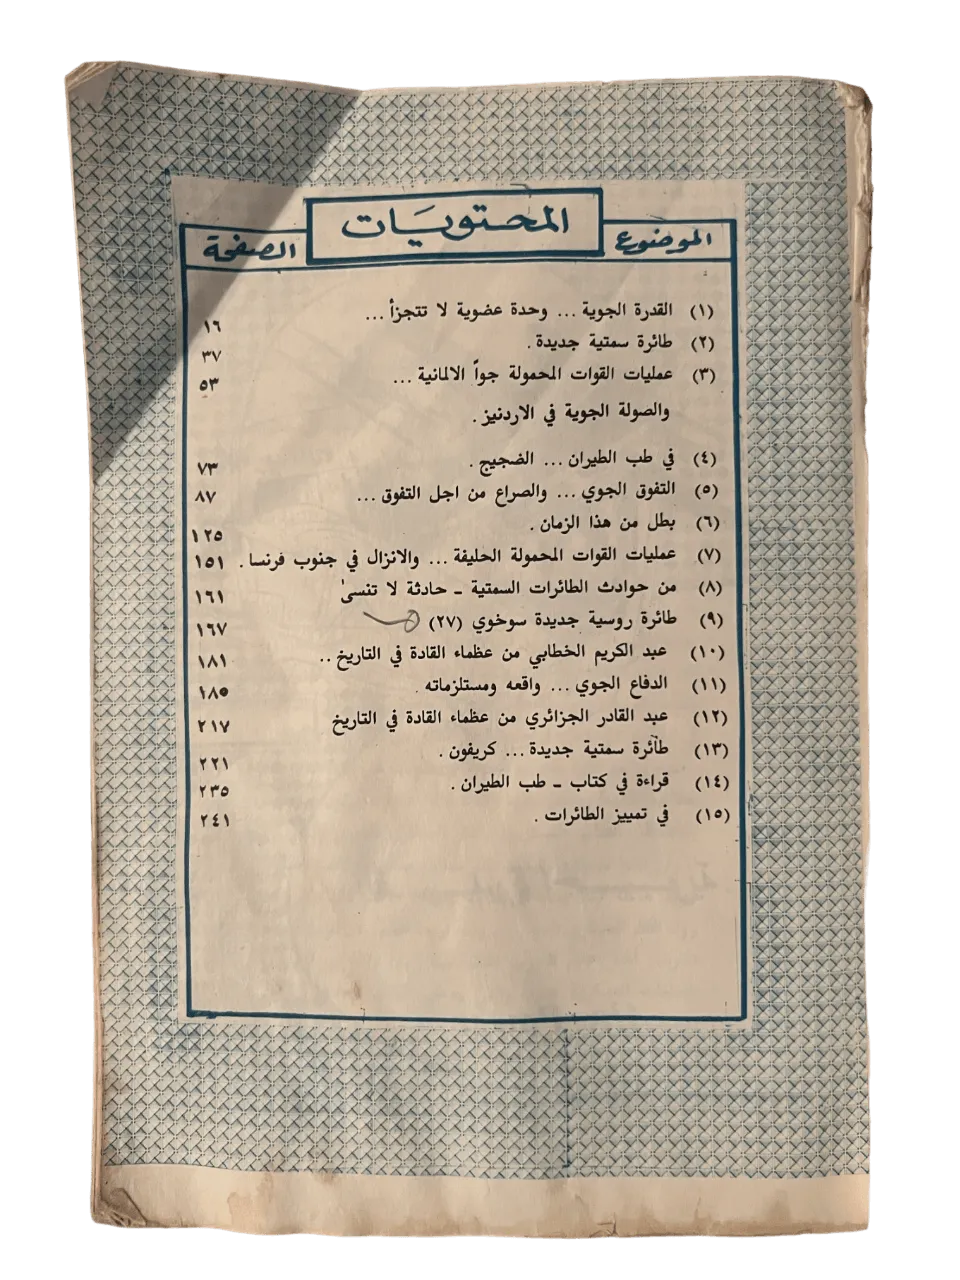 المحتويات
الموضوع الصفحة
(١) القدرة الجوية ... وحدة عضوية لا تتجزأ ... ١٦
(٢) طائرة سمتية جديدة . ٣٧
(٣) عمليات القوات المحمولة جواً الالمانية ... ٥٣
والصولة الجوية في الاردنيز .
(٤) في طب الطيران ... الضجيج . ٧٣
(٥) التفوق الجوي ... والصراع من اجل التفوق ... ٨٧
(٦) بطل من هذا الزمان . ١٢٥
(٧) عمليات القوات المحمولة الحليفة ... والانزال في جنوب فرنسا . ١٥١
(٨) من حوادث الطائرات السمتية - حادثة لا تنسىٰ ١٦١
(٩) طائرة روسية جديدة سوخوي (٢٧) ١٦٧
(١٠) عبد الكريم الخطابي من عظماء القادة في التاريخ .. ١٨١
(١١) الدفاع الجوي ... واقعه ومستلزماته . ١٨٥
(١٢) عبد القادر الجزائري من عظماء القادة في التاريخ ٢١٧
(١٣) طائرة سمتية جديدة ... كريفون . ٢٢١
(١٤) قراءة في كتاب - طب الطيران . ٢٣٥
(١٥) في تمييز الطائرات . ٢٤١